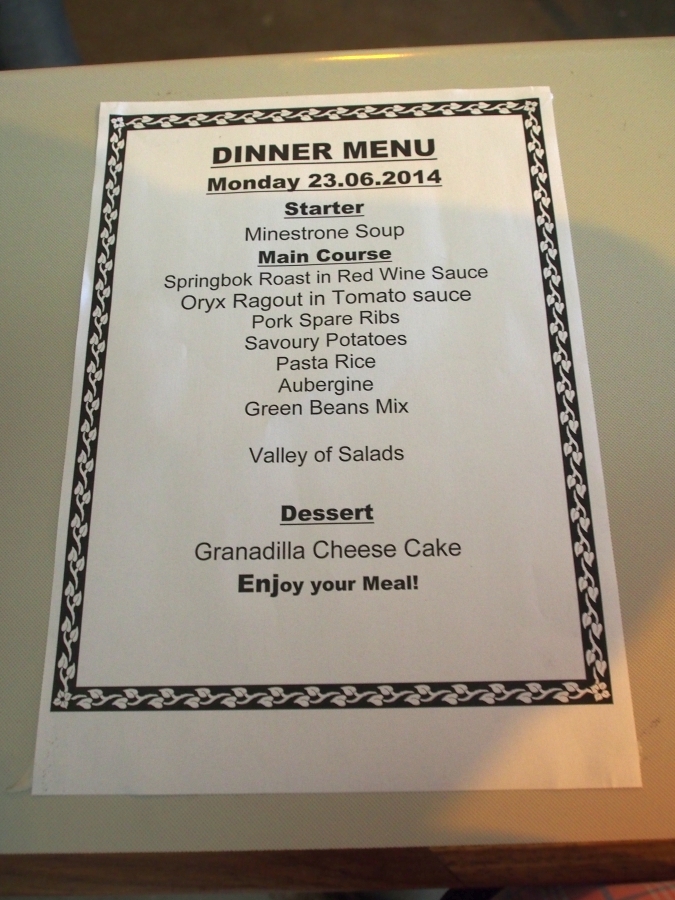 DINNER MENU
Monday 23.06.2014
Starter
Minestrone Soup
Main Course
Springbok Roast in Red Wine Sauce
Oryx Ragout in Tomato sauce
Pork Spare Ribs
Savoury Potatoes
Pasta Rice
Aubergine
Green Beans Mix
Valley of Salads
Dessert
Granadilla Cheese Cake
Enjoy your Meal!